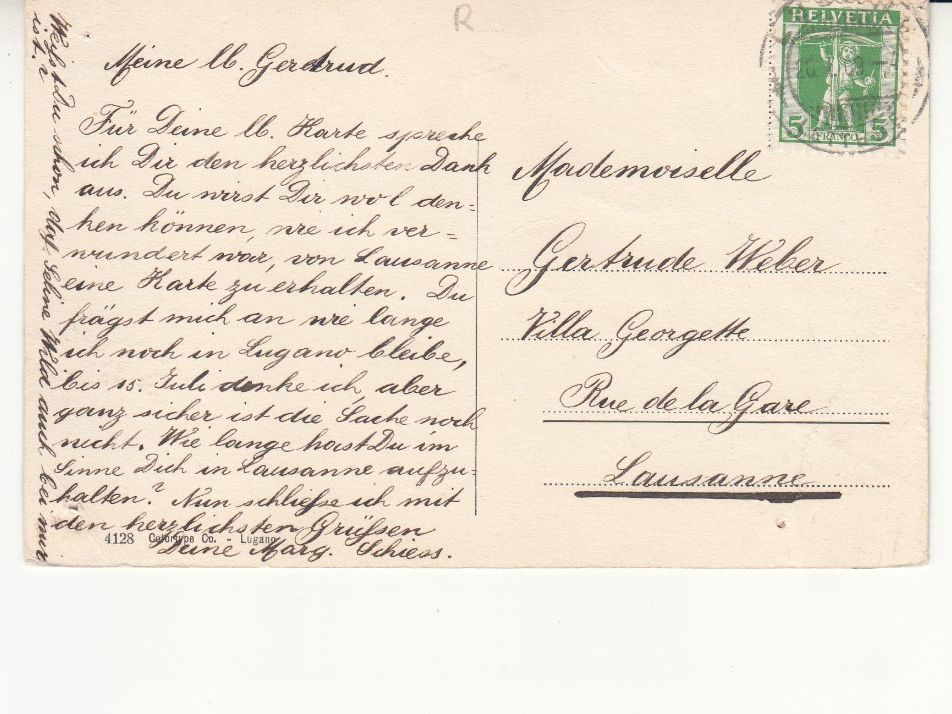 R
HELVETIA
5 FRANCO 5
Meine lb. Gertrud.
Für Deine lb. Karte spreche
ich Dir den herzlichsten Dank
aus. Du wirst Dir wol den-
ken können, wie ich ver-
wundert war, von Lausanne
eine Karte zu erhalten. Du
frägst mich an wie lange
ich noch in Lugano bleibe,
bis 15. Juli denke ich, aber
ganz sicher ist die Sache noch
nicht. Wie lange hast Du im
Sinne Dich in Lausanne aufzu-
halten? Nun schließe ich mit
den herzlichsten Grüßen
Deine Marg. Schiess.
Weißt Du schon, daß Seline Wild auch bei mir
ist.?
4128 Calortype Co. - Lugano
Mademoiselle
Gertrude Weber
Villa Georgette
Rue de la Gare
Lausanne